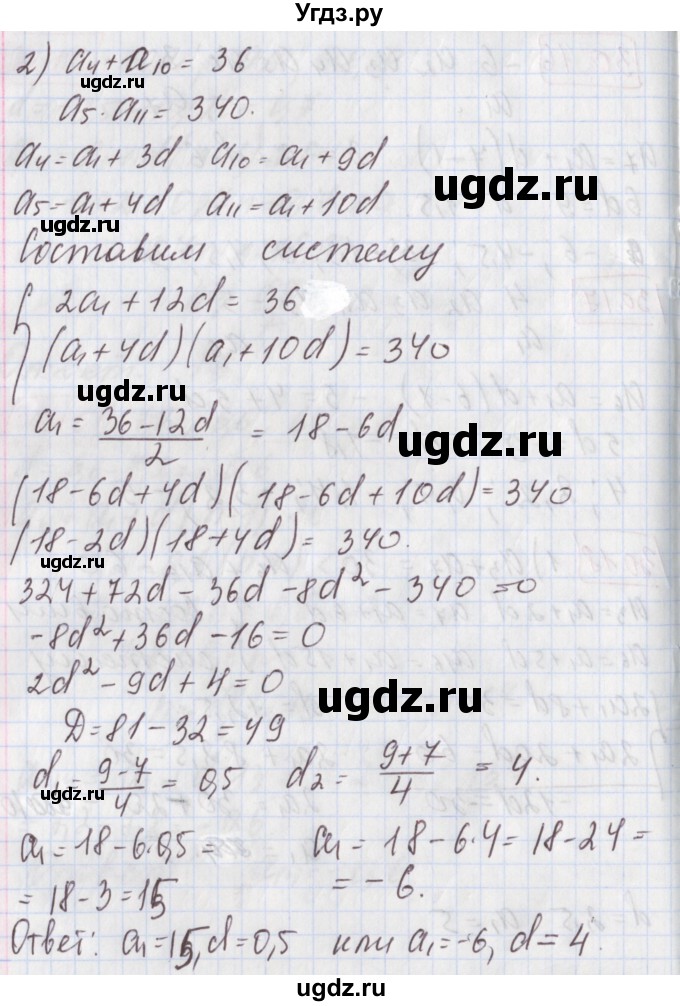 Угдз.ру
2) a₄+a₁₀ = 36
a₅·a₁₁ = 340.
a₄=a₁+3d a₁₀=a₁+9d
ugdz.ru
ugdz.ru
a₅=a₁+4d a₁₁=a₁+10d
Составим систему
{ 2a₁+12d=36
(a₁+4d)(a₁+10d)=340
ugdz.ru
a₁ = (36-12d)/2 = 18-6d
ugdz.ru
(18-6d+4d)(18-6d+10d)=340
(18-2d)(18+4d)=340.
ugdz.ru
324+72d-36d-8d²-340=0
-8d²+36d-16=0
2d²-9d+4=0
ugdz.ru
D=81-32=49
d₁=(9-7)/4=0,5 d₂=(9+7)/4=4.
ugdz.ru
a₁=18-6·0,5= a₁=18-6·4=18-24=
=18-3=15 =-6.
Ответ: a₁=15, d=0,5 или a₁=-6, d=4.
ugdz.ru
ugdz.ru